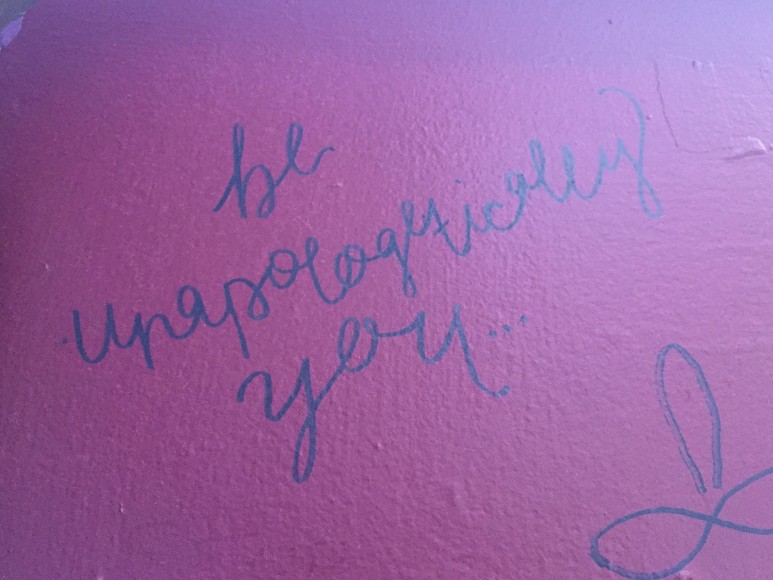 be
unapologetically
you...